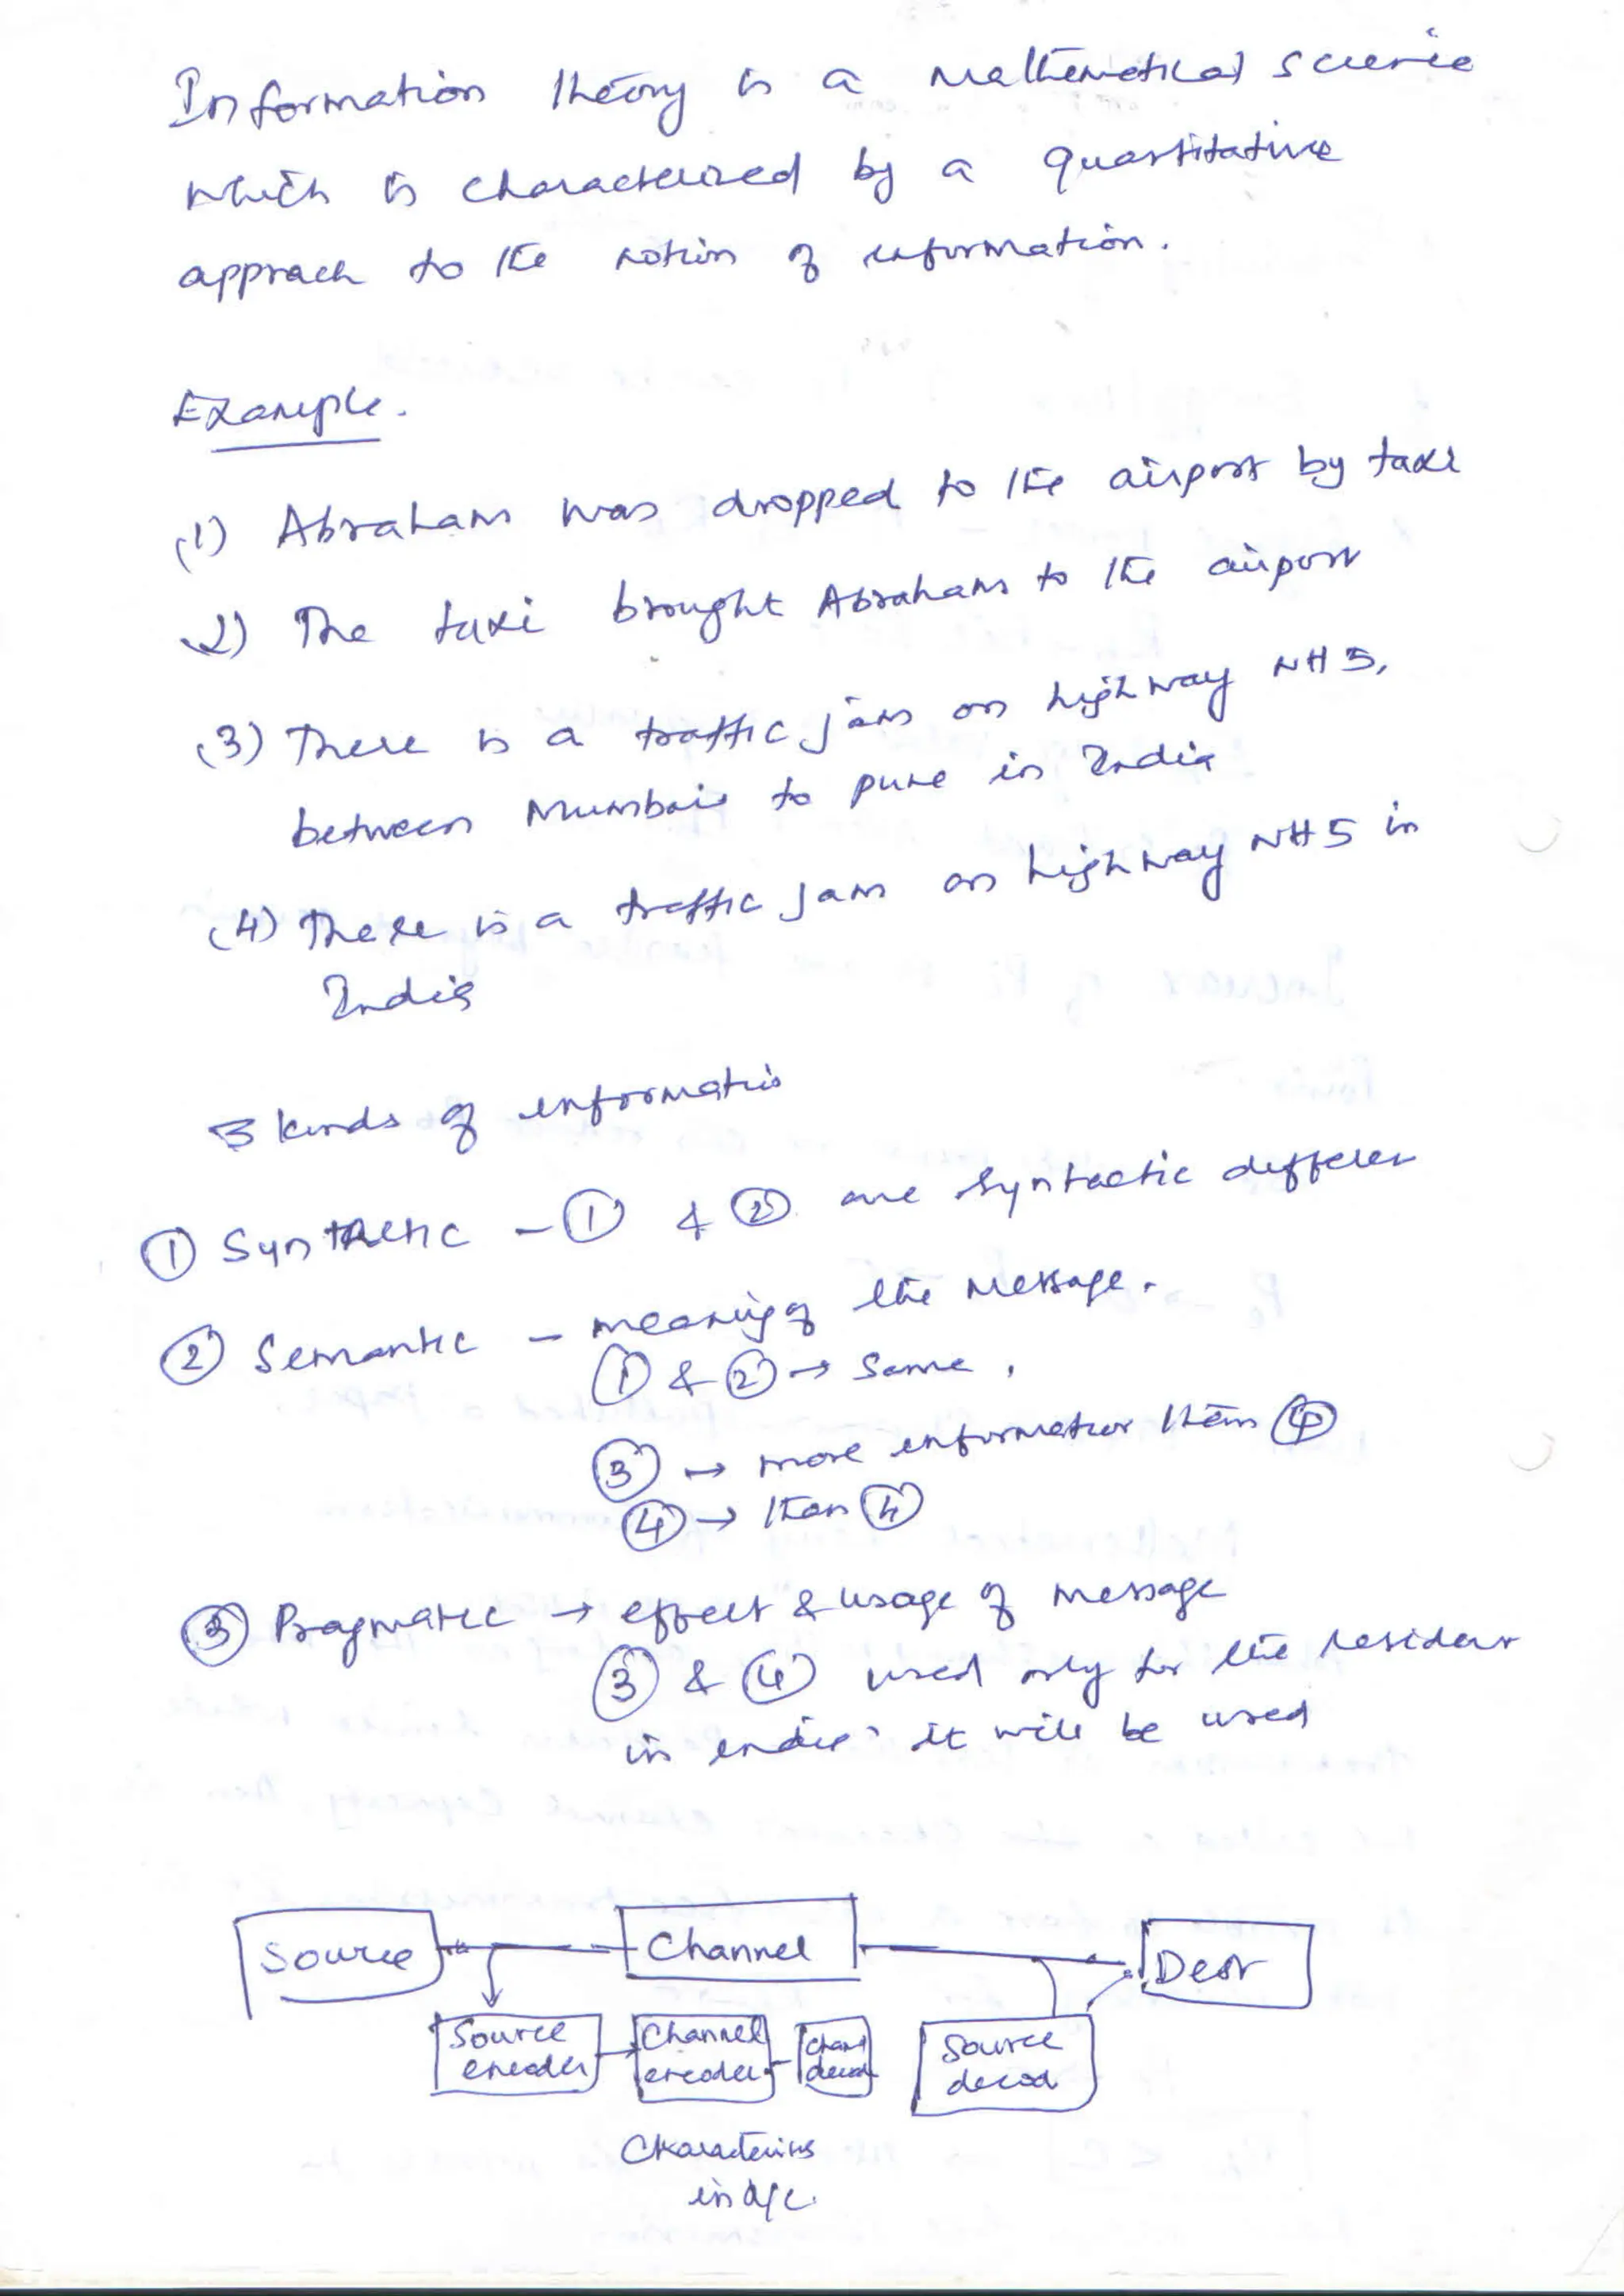 Information theory is a mathematical science
which is characterized by a quantitative
apprach to the notion of information.
Example.
(1) Abraham was dropped to the airport by taxi
(2) The taxi brought Abraham to the airport
(3) There is a traffic jam on highway NH5,
between Mumbai to pune in India
(4) There is a traffic jam on highway NH5 in
India
3 kinds of informatio
① Synthetic - ① & ② are syntactic differen
② Semantic - meaning of the message.
① & ② → same,
③ → more information than ④
④ → than ④
③ Pragmatic → effect & usage of message
③ & ④ used only for the resident
in india it will be used
Source Channel Dest
Source encoder Channel encoder Chanl decod Source decod
Characterises
in